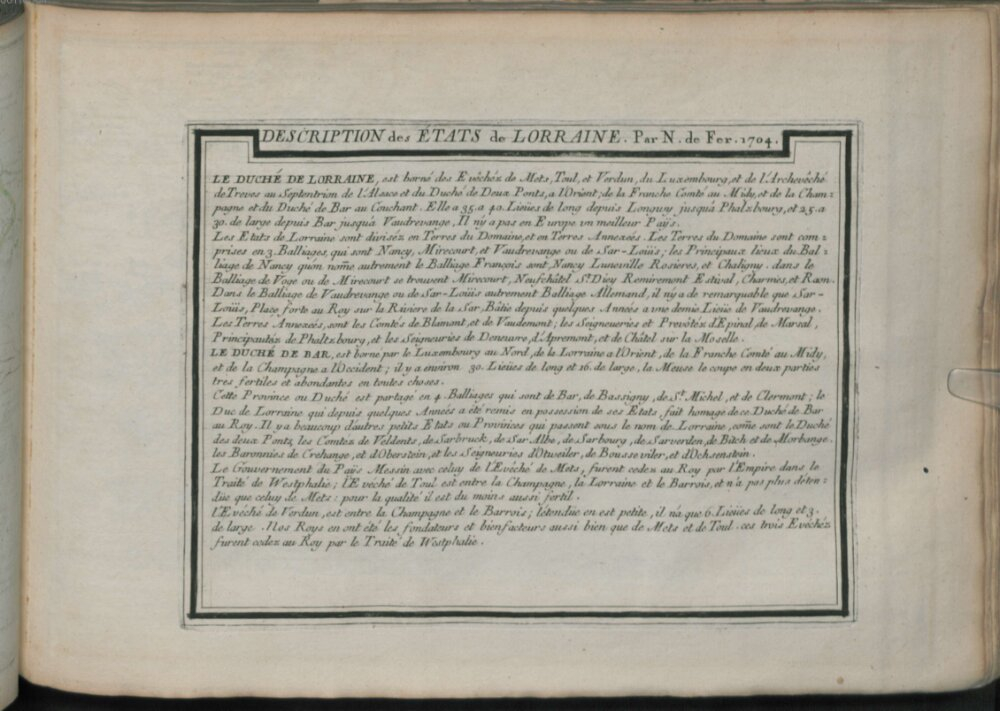 DESCRIPTION des ÉTATS de LORRAINE. Par N. de Fer. 1704.
LE DUCHÉ DE LORRAINE, est borné des Evêchéz de Mets, Toul, et Verdun, du Luxembourg, et de l'Archevêché
de Treves au Septentrion de l'Alsace et du Duché de Deux Ponts, a l'Orient, de la Franche Comté au Midy, et de la Cham=
pagne et du Duché de Bar au Couchant. Elle a 35. a 40. Lieües de long depuis Longwy jusqu'à Phalzbourg, et 25. a
30. de large depuis Bar jusqu'à Vaudrevange, Il n'y a pas en Europe un meilleur Païs.
Les Etats de Lorraine sont divisez en Terres du Domaine, et en Terres Annexeés. Les Terres du Domaine sont com=
prises en 3. Balliages, qui sont Nancy, Mirecourt, et Vaudrevange ou de Sar-Loüis; les Principaux lieux du Bal=
liage de Nancy qu'on nom̃e autrement le Balliage François sont, Nancy Luneville Rosieres, et Chaligny. dans le
Balliage de Voge ou de Mirecourt se trouvent Mirecourt, Neufchâtel St. Diey Remiremont Estival, Charmes, et Raon.
Dans le Balliage de Vaudrevange ou de Sar-Loüis autrement Balliage Allemand, il n'y a de remarquable que Sar-
Loüis, Place forte au Roy sur la Riviere de la Sar, Bâtie depuis quelques Anneés a une demie Lieüe de Vaudrevange.
Les Terres Annexeés, sont les Comtés de Blamont, et de Vaudemont; les Seigneueries et Prevôtéz d'Epinal, de Marsal,
Principautéz de Phaltzbourg, et les Seigneuries de Deneuvre, d'Apremont, et de Châtel sur la Moselle.
LE DUCHÉ DE BAR, est borné par le Luxembourg au Nord, de la Lorraine a l'Orient, de la Franche Comté au Midy,
et de la Champagne a l'Occident; il y a environ 30. Lieües de long et 16. de large, la Meuse le coupe en deux parties
tres fertiles et abondantes en toutes choses.
Cette Province ou Duché est partagé en 4. Balliages qui sont de Bar, de Bassigny, de St. Michel, et de Clermont; le
Duc de Lorraine qui depuis quelques Anneés a été remis en possession de ses Etats fait homage de ce Duché de Bar
au Roy. Il y a beaucoup d'autres petits Etats ou Provinces qui passent sous le nom de Lorraine, com̃e sont le Duché
des deux Ponts, les Comtéz de Veldents, de Sarbruck, de Sar Albe, de Sarbourg, de Sarverden, de Bitch et de Morbange.
les Baronnies de Crehange, et d'Oberstein, et les Seigneuries d'Otweiler, de Bousseviler, et d'Ochsenstein.
Le Gouvernement du Païs Messin avec celuy de l'Evêché de Mets, furent cedez au Roy par l'Empire dans le
Traité de Westphalie; l'Evêché de Toul est entre la Champagne, la Lorraine et le Barrois, et n'a pas plus d'éten=
düe que celuy de Mets: pour la qualité il est du moins aussi fertil.
l'Evêché de Verdun, est entre la Champagne et le Barrois; l'étendüe en est petite, il n'a que 6. Lieües de long et 3.
de large. Nos Roys en ont été les fondateurs et bienfacteurs aussi bien que de Mets et de Toul. ces trois Evêchéz
furent cedez au Roy par le Traité de Westphalie.